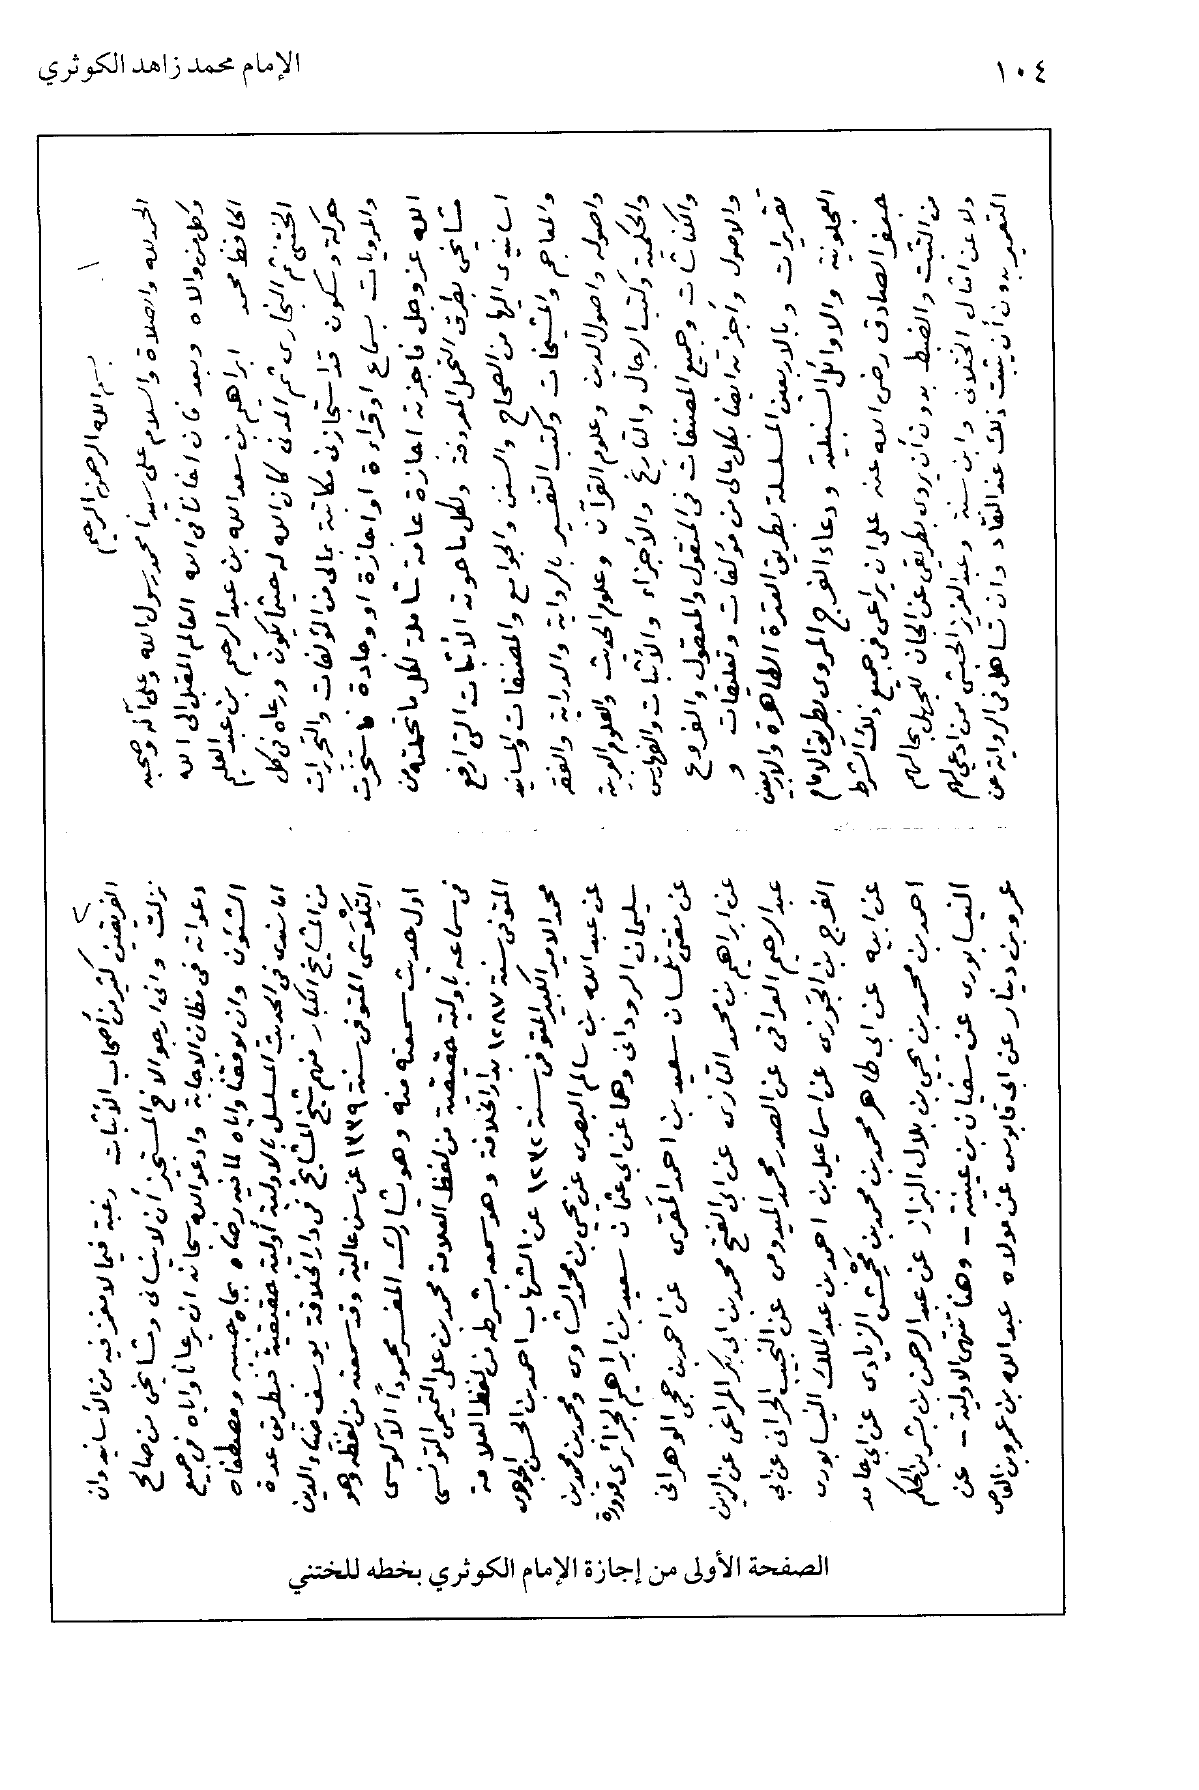 ١٠٤
الإمام محمد زاهد الكوثري
١
بسم الله الرحمن الرحيم
الحمد لله والصلاة والسلام على سيدنا محمد رسول الله وعلى آله وصحبه
وكل من والاه وبعد فان اخانا فى الله العالم المقبل الى الله
الحافظ محمد ابراهيم بن سعد الله بن عبد الرحيم بن عبد العليم
الختنى ثم البخارى ثم المدنى كان الله له حيثما يكون ورعاه فى كل
حركة وسكون قد استجازنى مكاتبة بمالى من المؤلفات والتحريرات
والمرويات بسماع او قراءة او اجازة او وجادة فاستخرت
الله عز وجل فاجزته اجازة عامة شاملة لكل ما تحملته من
مشايخى بطرق التحمل المعروفة ولكل ما حوته الأثبات التى ارفع
اسانيدى اليها من الصحاح والسنن والجوامع والمصنفات والمسانيد
والمعاجم والمشيخات وكتب التفسير بالرواية والدراية والفقه
واصوله واصول الدين وعلوم القرآن وعلوم الحديث والعلوم العربية
والحكمية وكتب الرجال والتاريخ والأجزاء والأثبات والفهارس
والكناشات وجميع المصنفات فى المنقول والمعقول والفروع
والاصول وأجزته ايضا بكل مالى من مؤلفات وتعليقات و
تقريرات وبالاربعين المسلسلة بطريق العترة الطاهرة والاربعين
العجلونية والاوائل السنبلية ودعاء الفرج المروى بطريق الامام
جعفر الصادق رضى الله عنه على ان يراعى فى جميع ذلك الشرط
من التثبت والضبط بدون أن يروى بطريقى عن الجان للجهل بحالهم
ولا عن امثال الختلانى وابن سنة وعبد العزيز الحبشى ممن ادعى لهم
التعمير بدون أن يثبت ذلك عند النقاد وان تساهل فى الرواية عن
٢
الفريقين كثير من أصحاب الأثبات رغبة فيما لا مغز فيه من الأسانيد وان
نزلت وانى ارجو الاخ المستجيز أن لا ينسانى ومشايخى من صالح
دعواته فى مظان الاجابة وادعو الله سبحانه ان يرعانا واياه فى جميع
الشئون وان يوفقنا واياه لما فيه رضاه بجاه حبيبه ومصطفاه
اما سندى فى الحديث المسلسل بالاولية أولية حقيقية فبطريق عدة
من المشايخ الكبار منهم شيخ المشايخ فى دار الخلافة يوسف ضياء الدين
التكوشى المتوفى سنة ١٣٣٩ عن سن عالية وقد سمعته من لفظه وهو
اول حديث سمعته منه وهو يشارك المفسر محمودا الآلوسى
فى سماعه باولية حقيقية من لفظ العلامة محمد بن على التميمى التونسى
المتوفى سنة ١٢٨٧ بدار الخلافة وهو سمعه بشرطه من لفظ العلامة
محمد الامير الكبير المتوفى سنة ١٢٣٢ عن الشهاب احمد بن الحسن الجوهرى
عن عبد الله بن سالم البصرى عن يحيى بن محمد الشاوى ومحمد بن محمد بن
سليمان الرودانى وهما عن ابى عثمان سعيد بن ابراهيم الجزائرى قدورة
عن مفتى تلمسان سعيد بن احمد المقرى عن احمد بن حجى الوهرانى
عن ابراهيم بن محمد التازى عن ابى الفتح محمد بن ابى بكر المراغى عن الزين
عبد الرحيم العراقى عن الصدر محمد الميدومى عن النجيب الحرانى عن ابى
الفرج بن الجوزى عن اسماعيل بن احمد بن عبد الملك النيسابورى
عن ابيه عن ابى طاهر محمد بن محمد بن محمش الزيادى عن ابى حامد
احمد بن محمد بن يحيى بن بلال البزاز عن عبد الرحمن بن بشر بن الحكم
النيسابورى عن سفيان بن عيينة - وهنا تنتهى الاولية - عن
عمرو بن دينار عن ابى قابوس عن مولاه عبد الله بن عمرو بن العاص
الصفحة الأولى من إجازة الإمام الكوثري بخطه للختني